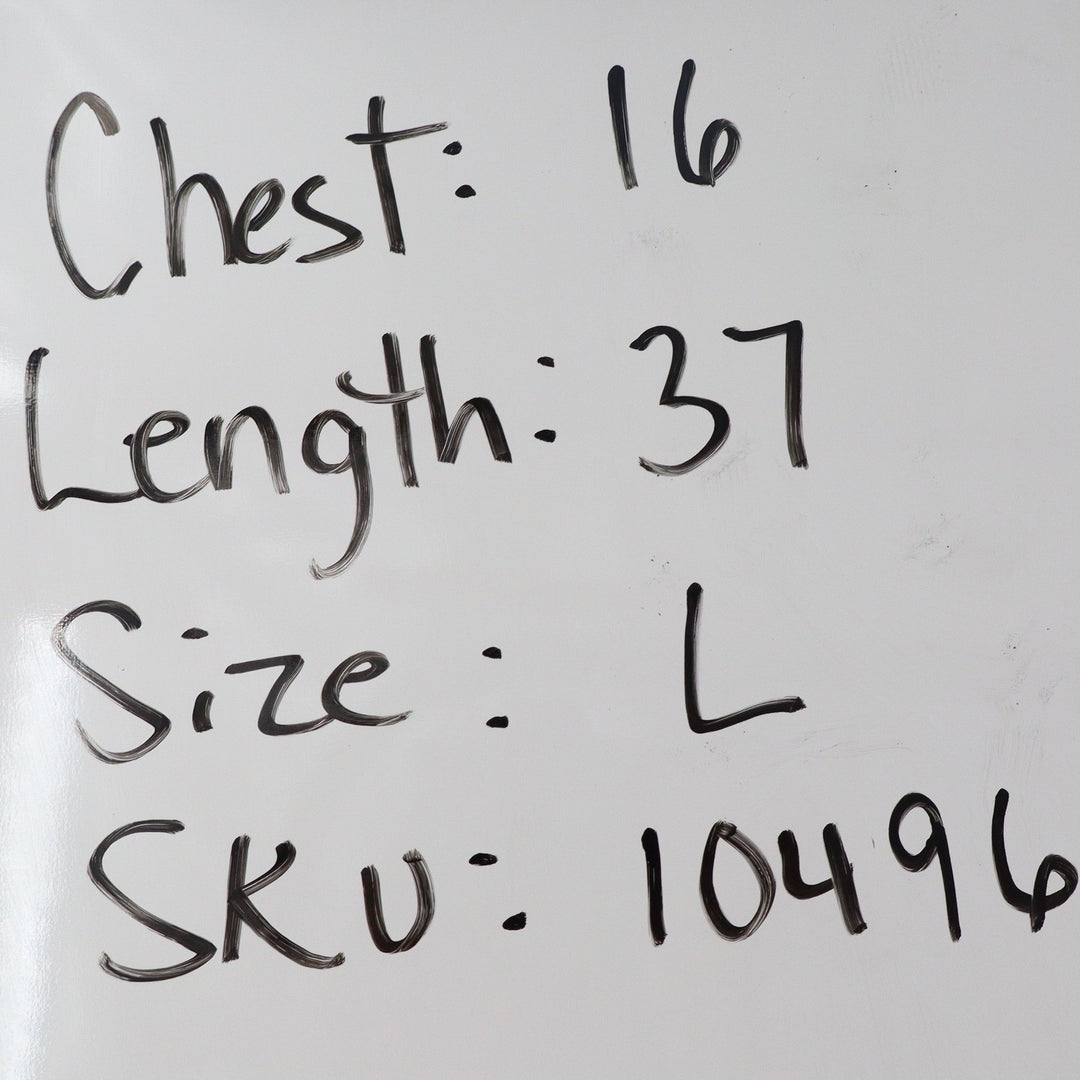 Chest: 16
Length: 37
Size: L
SKU: 10496